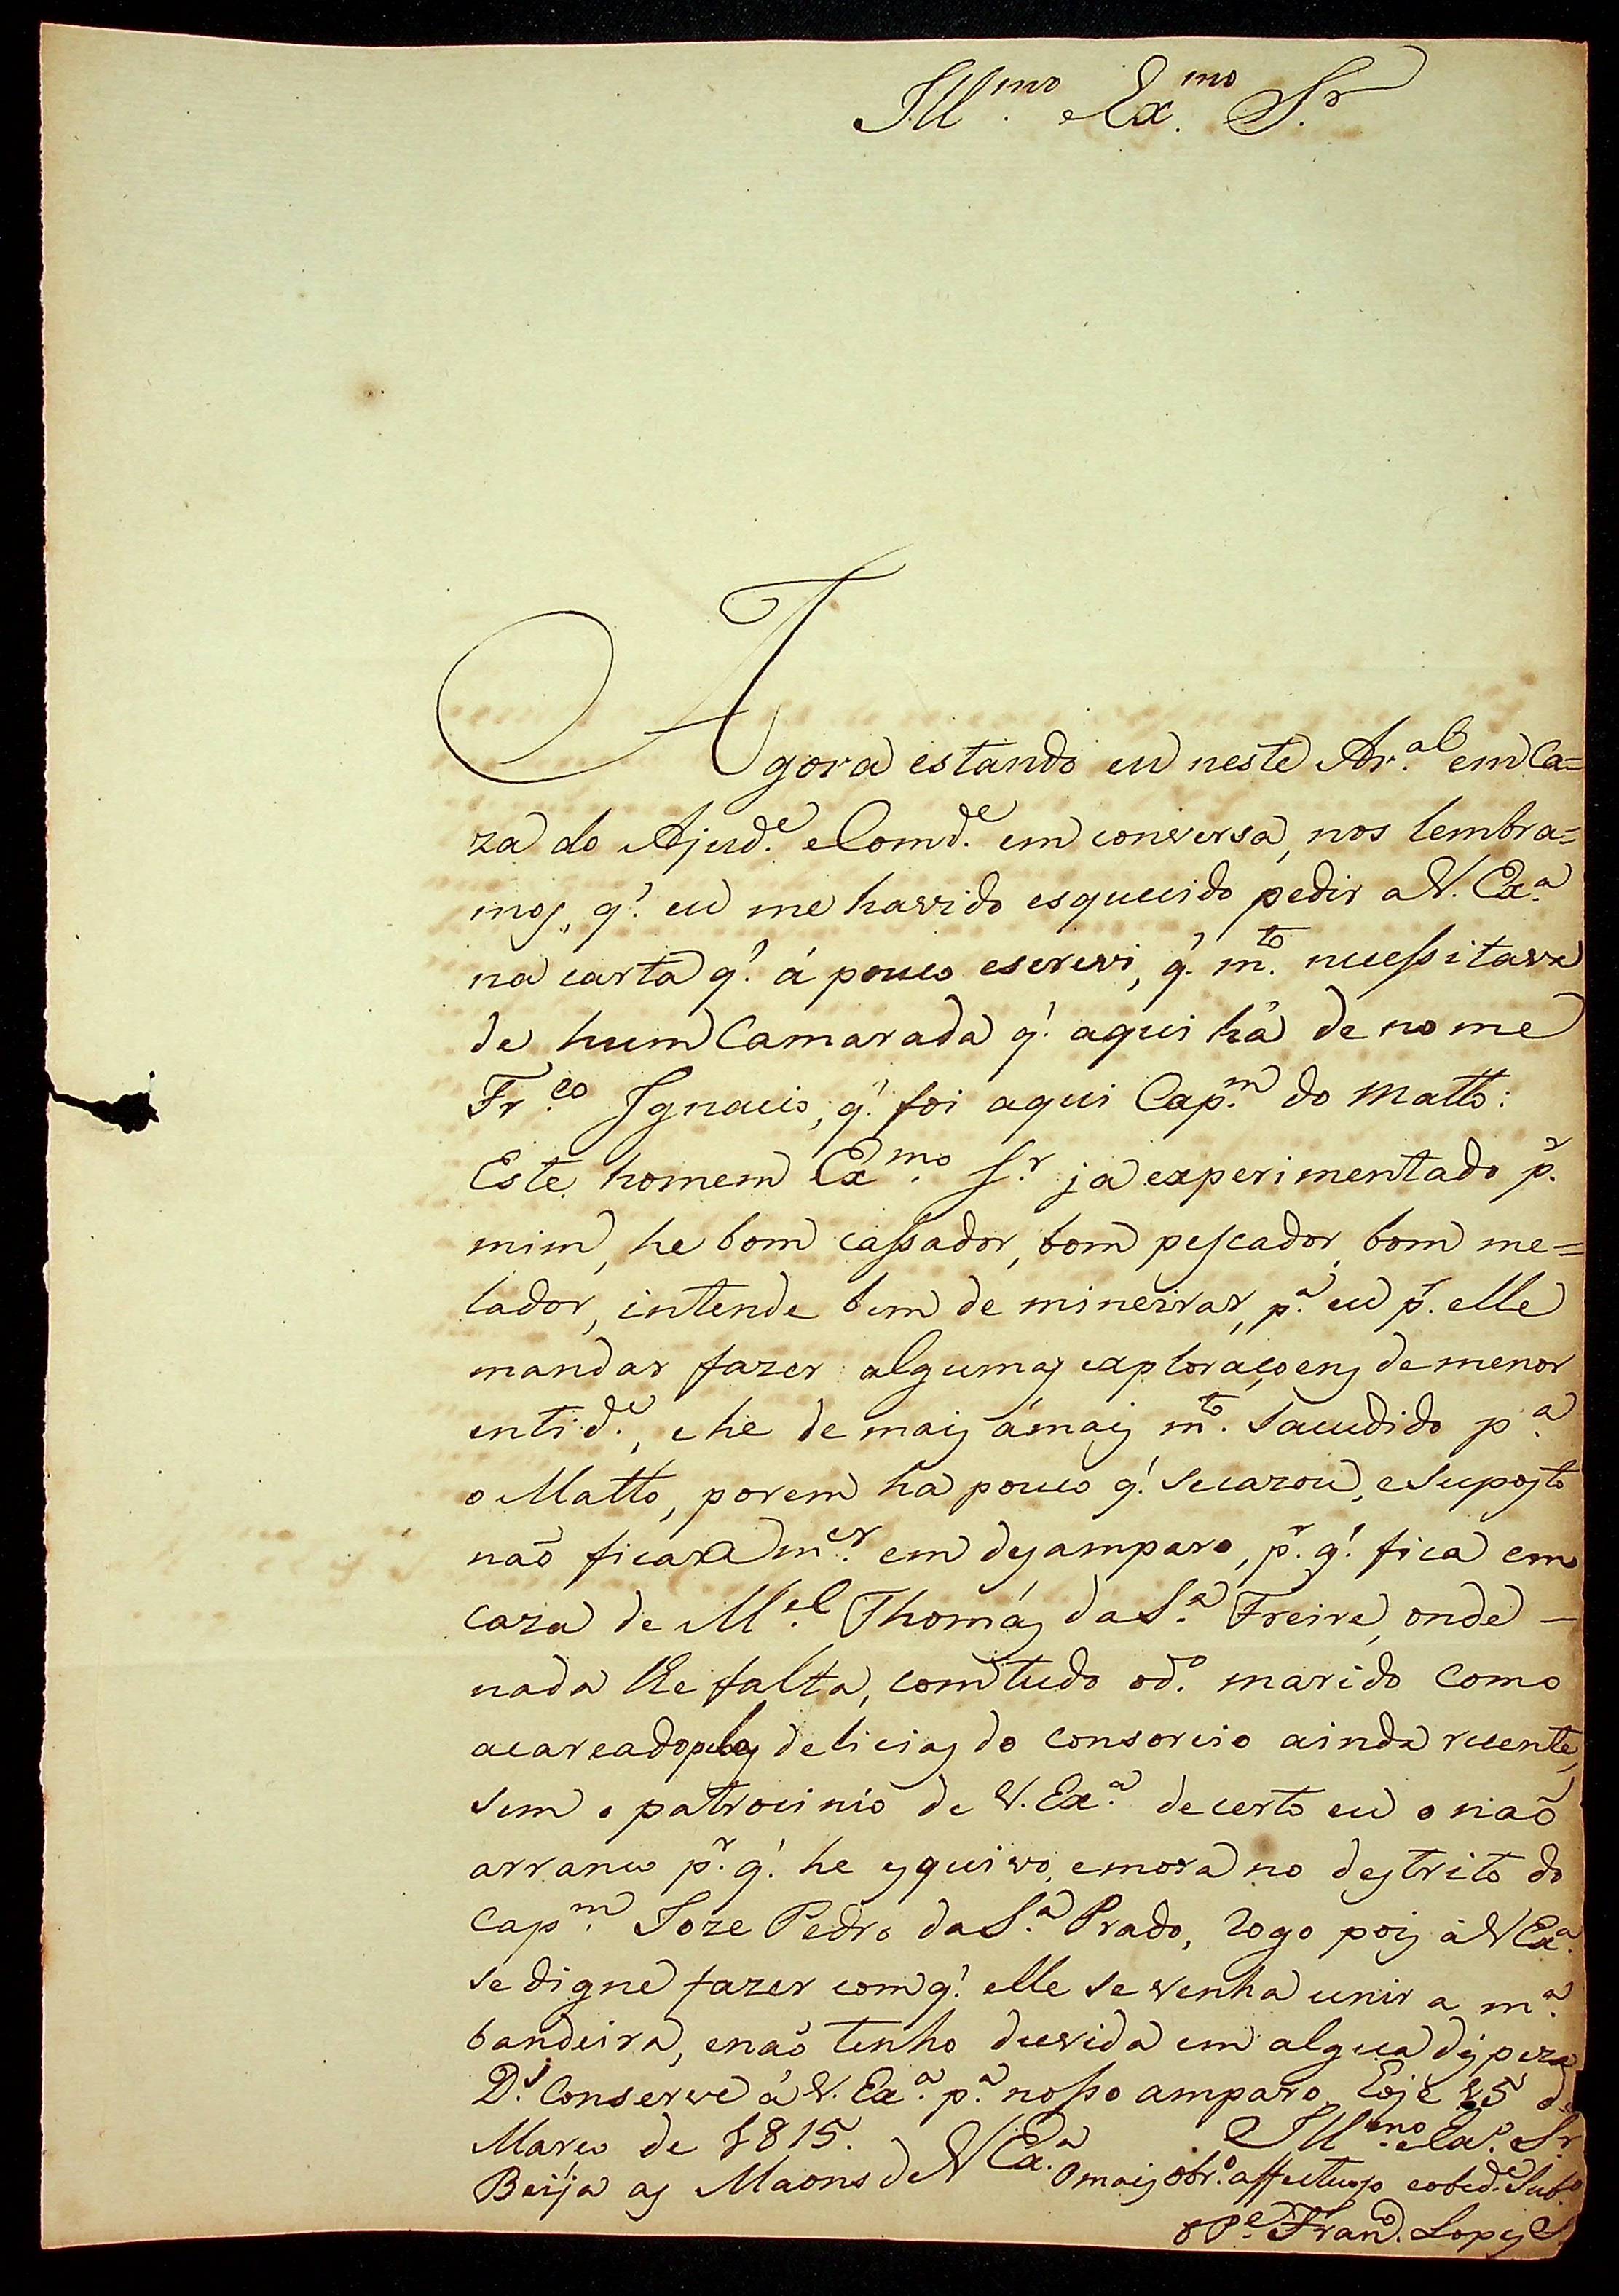 Ill.mo Ex.mo S.r
Agora estando eu neste Ar.al em Ca=
za do Ajud.e e Comd.e em conversa, nos lembra=
mos, q.' eu me havido esquecido pedir a V. Ex.a
na carta q.' á pouco escrevi, q.' m.to necessitava
de hum Camarada q.' aqui há de nome
Fr.co Ignacio, q.' foi aqui Cap.m do Matto:
Este homem Ex.mo S.r ja experimentado p.r
mim, he bom cassador, bom pescador, bom me=
lador, intende bem de mineirar, p.a eu p.r elle
mandar fazer algumas exploraçoens de menor
entid.e, e he de mais ámais m.to sacudido p.a
o Matto, porem ha pouco q.' se cazou, e suposto
não ficara m.er em desamparo, p.r q.' fica em
caza de M.el Thomás da S.a Freire, onde –
nada lhe falta, com tudo o d.o marido como
acareado pelas delicias do consorcio ainda recente,
sem o patrocinio de V. Ex.a decerto eu o não
arranco p.r q.' he esquivo, e mora no destrito do
Cap.m Joze Pedro da S.a Prado, rogo pois á V Ex.a
se digne fazer com q.' elle se venha unir a m.a
bandeira, e não tenho duvida em algua despeza
D.s Conserve á V. Ex.a p.a nosso amparo, Eoje 25 de
Março de 1815.
Ill.mo e Ex.o Sr
Beija as Maons de V Ex.a
O mais obr.o affectuoso e obed.e Sub.o
o P.e Fran.co Lopes S